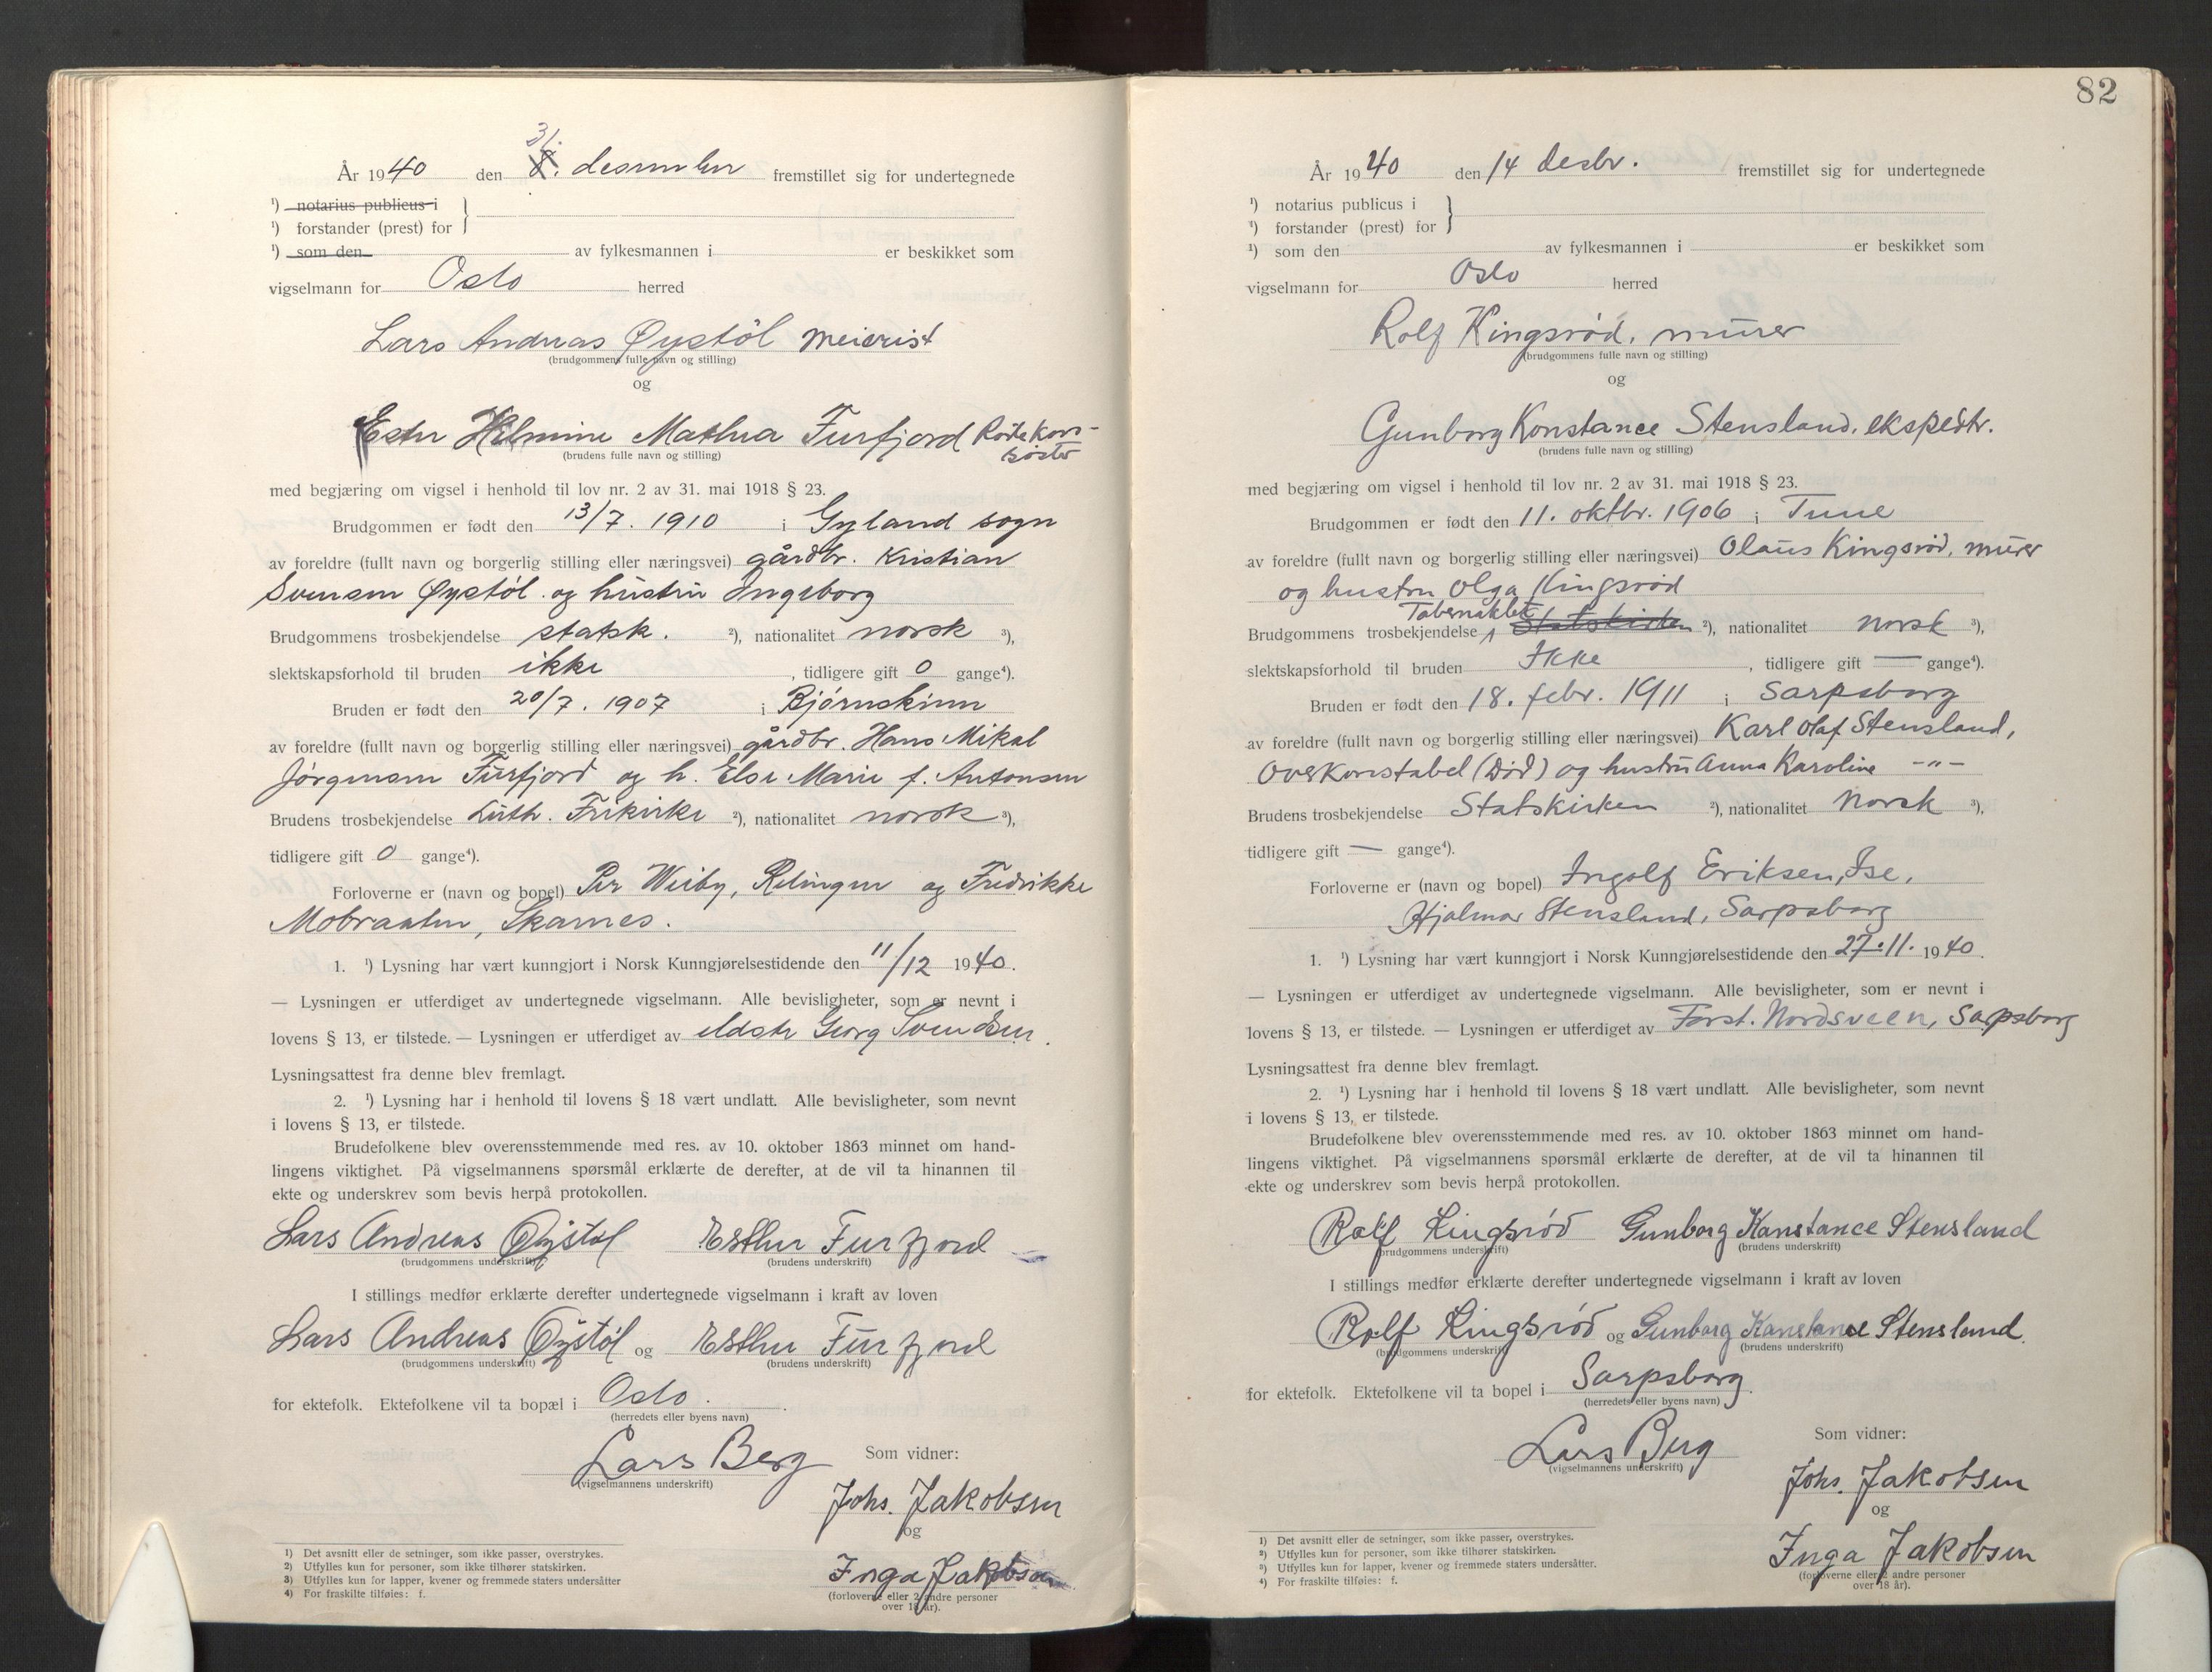 År 1940 den 31. desember fremstillet sig for undertegnede
¹) notarius publicus i
¹) forstander (prest) for
¹) som den av fylkesmannen i er beskikket som
vigselmann for Oslo herred
Lars Andreas Øystöl meierist
(brudgommens fulle navn og stilling)
og
Ester Helmine Mathea Furfjord Røde kors-
søster
(brudens fulle navn og stilling)
med begjæring om vigsel i henhold til lov nr. 2 av 31. mai 1918 § 23.
Brudgommen er født den 13/7. 1910 i Gyland sogn
av foreldre (fullt navn og borgerlig stilling eller næringsvei) gårdbr. Kristian
Svensen Øystöl og hustru Ingeborg
Brudgommens trosbekjendelse statsk. ²), nationalitet norsk ³),
slektskapsforhold til bruden ikke , tidligere gift 0 gange⁴).
Bruden er født den 20/7. 1907 i Bjørnskinn
av foreldre (fullt navn og borgerlig stilling eller næringsvei) gårdbr. Hans Mikal
Jørgensen Furfjord og h. Else Marie f. Antonsen
Brudens trosbekjendelse Luth. Frikirke ²), nationalitet norsk ³),
tidligere gift 0 gange⁴).
Forloverne er (navn og bopel) Per Weiby, Relingen og Fredrikke
Mobraaten, Skarnes.
1. ¹) Lysning har vært kunngjort i Norsk Kunngjørelsestidende den 11/12 1940.
— Lysningen er utferdiget av undertegnede vigselmann. Alle bevisligheter, som er nevnt i
lovens § 13, er tilstede. — Lysningen er utferdiget av eldste Georg Svendsen.
Lysningsattest fra denne blev fremlagt.
2. ¹) Lysning har i henhold til lovens § 18 vært undlatt. Alle bevisligheter, som nevnt
i lovens § 13, er tilstede.
Brudefolkene blev overensstemmende med res. av 10. oktober 1863 minnet om hand-
lingens viktighet. På vigselmannens spørsmål erklærte de derefter, at de vil ta hinannen til
ekte og underskrev som bevis herpå protokollen.
Lars Andreas Øystøl Esther Furfjord
(brudgommens underskrift) (brudens underskrift)
I stillings medfør erklærte derefter undertegnede vigselmann i kraft av loven
Lars Andreas Øystøl og Esther Furfjord
(brudgommens underskrift) (brudens underskrift)
for ektefolk. Ektefolkene vil ta bopæl i Oslo.
(herredets eller byens navn)
Lars Berg Som vidner:
(vigselmannens underskrift)
Johs. Jakobsen
og
Inga Jakobsen
(forloverne eller 2 andre personer
over 18 år).
1) Det avsnitt eller de setninger, som ikke passer, overstrykes.
2) Utfylles kun for personer, som ikke tilhører statskirken.
3) Utfylles kun for lapper, kvener og fremmede staters undersåtter
4) For fraskilte tilføies: f.
82
År 1940 den 14 desbr. fremstillet sig for undertegnede
¹) notarius publicus i
¹) forstander (prest) for
¹) som den av fylkesmannen i er beskikket som
vigselmann for Oslo herred
Rolf Kingsrød, murer
(brudgommens fulle navn og stilling)
og
Gunborg Konstance Stensland, ekspedtr.
(brudens fulle navn og stilling)
med begjæring om vigsel i henhold til lov nr. 2 av 31. mai 1918 § 23.
Brudgommen er født den 11. oktbr. 1906 i Tune
av foreldre (fullt navn og borgerlig stilling eller næringsvei) Olaus Kingsrød, murer
og hustru Olga Kingsrød
Tabernaklet
Brudgommens trosbekjendelse Statskirken ²), nationalitet norsk ³),
slektskapsforhold til bruden Ikke , tidligere gift — gange⁴).
Bruden er født den 18. febr. 1911 i Sarpsborg
av foreldre (fullt navn og borgerlig stilling eller næringsvei) Karl Olaf Stensland,
Overkonstabel (død) og hustru Anna Karoline -"-
Brudens trosbekjendelse Statskirken ²), nationalitet Norsk ³),
tidligere gift — gange⁴).
Forloverne er (navn og bopel) Ingolf Eriksen, Ise,
Hjalmar Stensland, Sarpsborg
1. ¹) Lysning har vært kunngjort i Norsk Kunngjørelsestidende den 27.11. 1940.
— Lysningen er utferdiget av undertegnede vigselmann. Alle bevisligheter, som er nevnt i
lovens § 13, er tilstede. — Lysningen er utferdiget av Forst. Nordsveen, Sarpsborg
Lysningsattest fra denne blev fremlagt.
2. ¹) Lysning har i henhold til lovens § 18 vært undlatt. Alle bevisligheter, som nevnt
i lovens § 13, er tilstede.
Brudefolkene blev overensstemmende med res. av 10. oktober 1863 minnet om hand-
lingens viktighet. På vigselmannens spørsmål erklærte de derefter, at de vil ta hinannen til
ekte og underskrev som bevis herpå protokollen.
Rolf Kingsrød Gunborg Konstance Stensland
(brudgommens underskrift) (brudens underskrift)
I stillings medfør erklærte derefter undertegnede vigselmann i kraft av loven
Rolf Kingsrød og Gunborg Konstance Stensland
(brudgommens underskrift) (brudens underskrift)
for ektefolk. Ektefolkene vil ta bopel i Sarpsborg.
(herredets eller byens navn)
Lars Berg Som vidner:
(vigselmannens underskrift)
Johs. Jakobsen
og
Inga Jakobsen
(forloverne eller 2 andre personer
over 18 år).
1) Det avsnitt eller de setninger, som ikke passer, overstrykes.
2) Utfylles kun for personer, som ikke tilhører statskirken.
3) Utfylles kun for lapper, kvener og fremmede staters undersåtter.
4) For fraskilte tilføies: f.